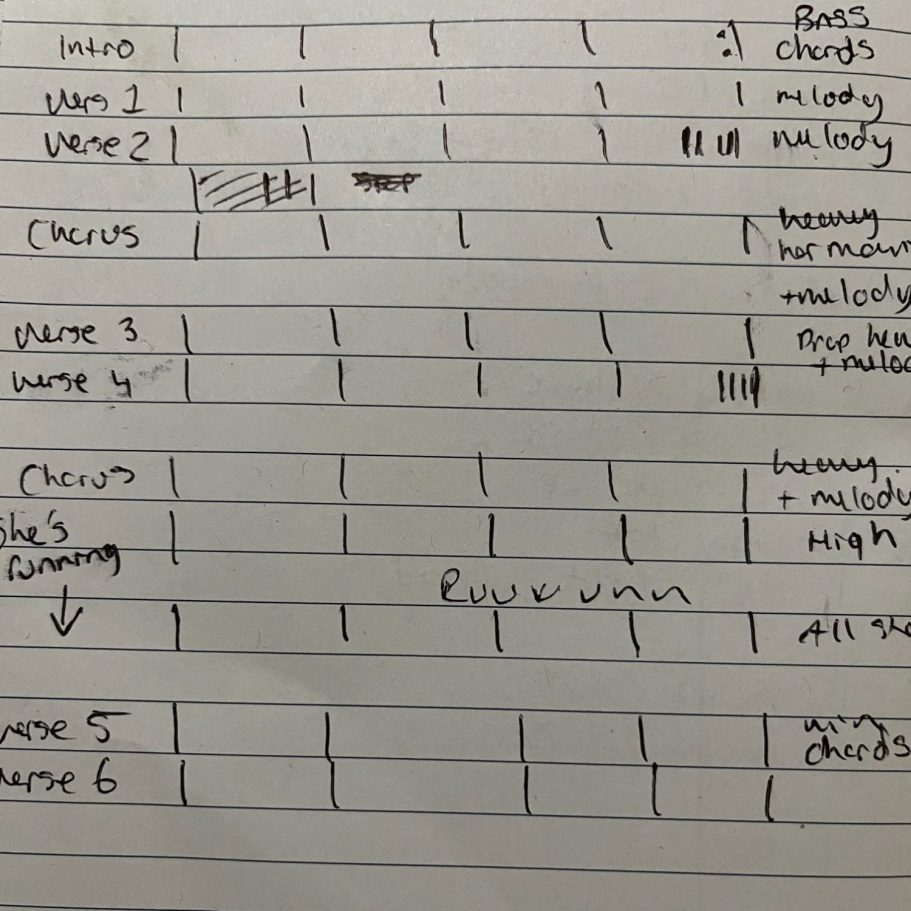 BASS
Intro | | | | :| chords
Vers 1 | | | | | melody
Verse 2 | | | | |||| melody
Chorus | | | | | heavy
harmon
+melody
Verse 3 | | | | | Drop hea
+ meloc
Verse 4 | | | | ||||
Chorus | | | | | heavy.
+ melody
She's | | | | | High
running
Ruuuunnn
↓ | | | | | All she
Verse 5 | | | | | min
chords
Verse 6 | | | | |